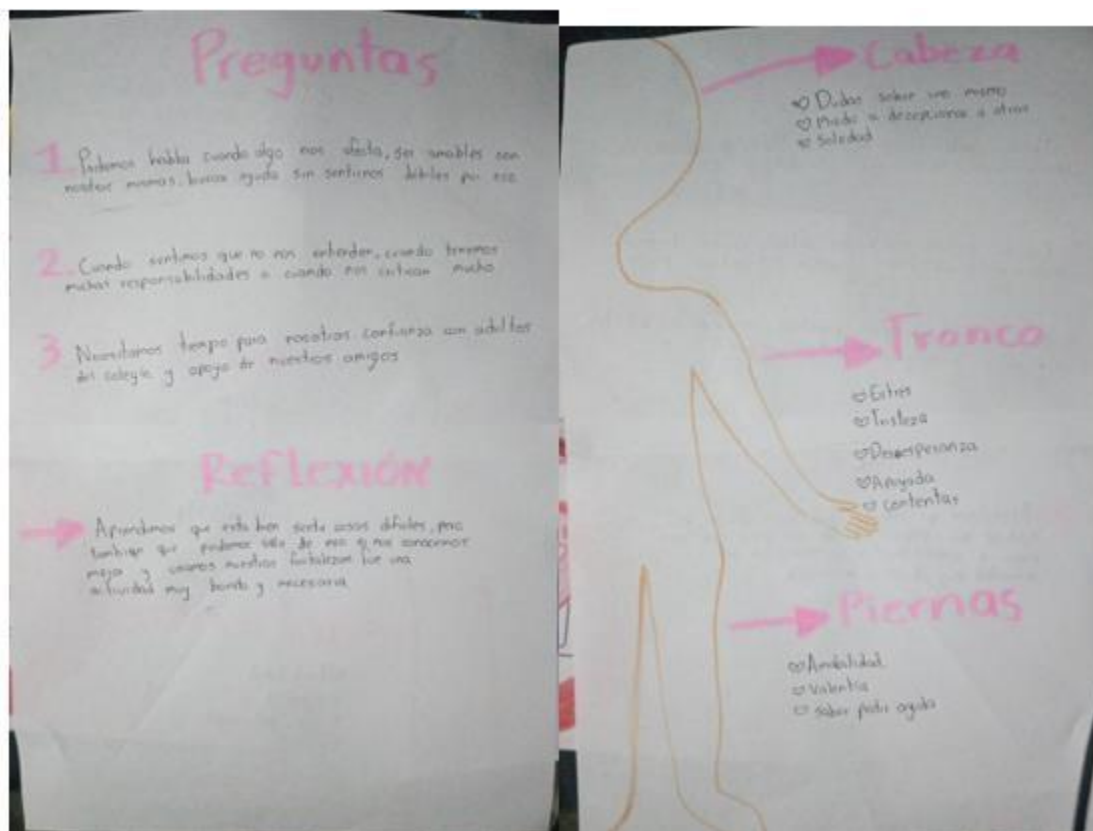 Preguntas
1. Podemos hablar cuando algo nos afecta, ser amables con
nosotras mismas, buscar ayuda sin sentirnos débiles por eso
2. Cuando sentimos que no nos entienden, cuando tenemos
muchas responsabilidades o cuando nos critican mucho
3 Necesitamos tiempo para nosotras confianza con adultos
del colegio y apoyo de nuestros amigos
Reflexión
Aprendimos que esta bien sentir cosas difíciles, pero
tambien que podemos salir de eso si nos conocemos
mejor y usamos nuestras fortalezas fue una
actividad muy bonita y necesaria
Cabeza
Dudas sobre uno mismo
Miedo a decepcionar a otros
Soledad
Tronco
Estres
Tristeza
Desesperanza
Apoyada
contentas
Piernas
Amabilidad
Valentía
saber pedir ayuda